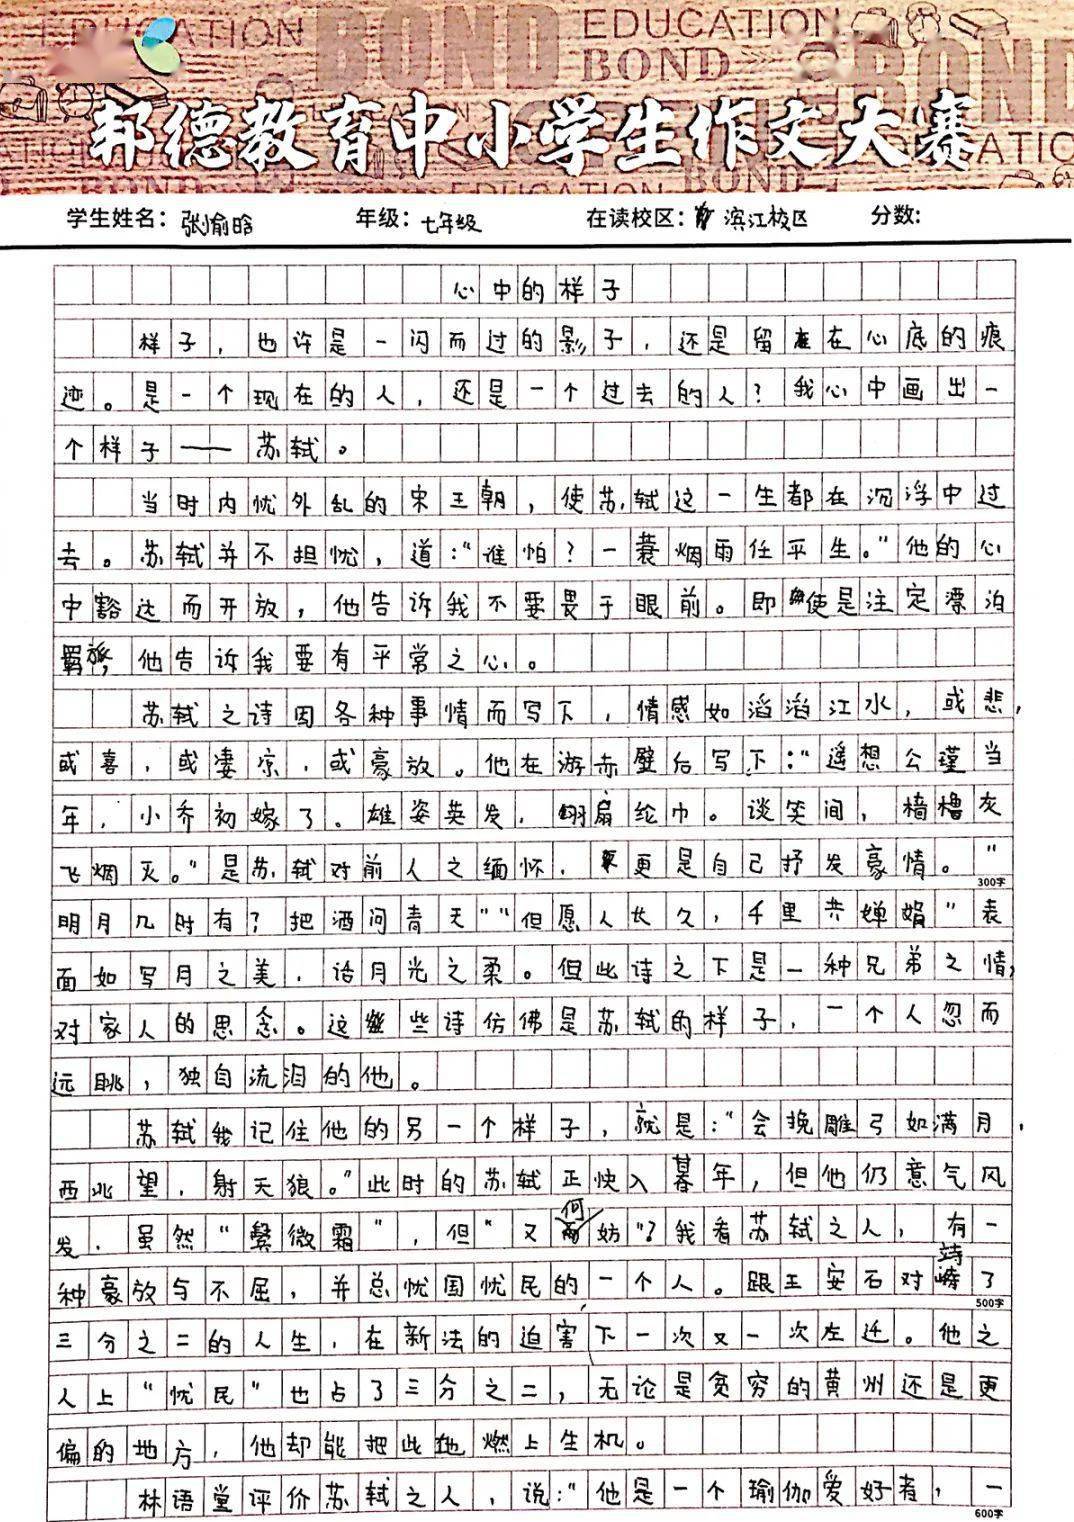 EDUCATION
BOND
EDUCATION
BOND
BOND
邦德教育中小学生作文大赛
BOND
BOND
学生姓名：张愉晗 年级：七年级 在读校区：滨江校区 分数:
心中的样子
样子，也许是一闪而过的影子，还是留在心底的痕
迹。是一个现在的人，还是一个过去的人？我心中画出一
个样子——苏轼。
当时内忧外乱的宋王朝，使苏轼这一生都在沉浮中过
去。苏轼并不担忧，道：“谁怕？一蓑烟雨任平生。”他的心
中豁达而开放，他告诉我不要畏于眼前。即使是注定漂泊
羁旅，他告诉我要有平常之心。
苏轼之诗因各种事情而写下，情感如滔滔江水，或悲，
或喜，或凄凉，或豪放。他在游赤壁后写下：“遥想公瑾当
年，小乔初嫁了。雄姿英发，羽扇纶巾。谈笑间，樯橹灰
飞烟灭。”是苏轼对前人之缅怀，更是自己抒发豪情。“
300字
明月几时有？把酒问青天”“但愿人长久，千里共婵娟”表
面如写月之美，话月光之柔。但此诗之下是一种兄弟之情，
对家人的思念。这些诗仿佛是苏轼的样子，一个人忽而
远眺，独自流泪的他。
苏轼我记住他的另一个样子，就是：“会挽雕弓如满月，
西北望，射天狼。”此时的苏轼正快入暮年，但他仍意气风
发，虽然“鬓微霜”，但“又何妨”？我看苏轼之人，有一
种豪放与不屈，并总忧国忧民的一个人。跟王安石对峙了
500字
三分之二的人生，在新法的迫害下一次又一次左迁。他之
人上“忧民”也占了三分之二，无论是贫穷的黄州还是更
偏的地方，他却能把此地燃上生机。
林语堂评价苏轼之人，说：“他是一个瑜伽爱好者，一
600字